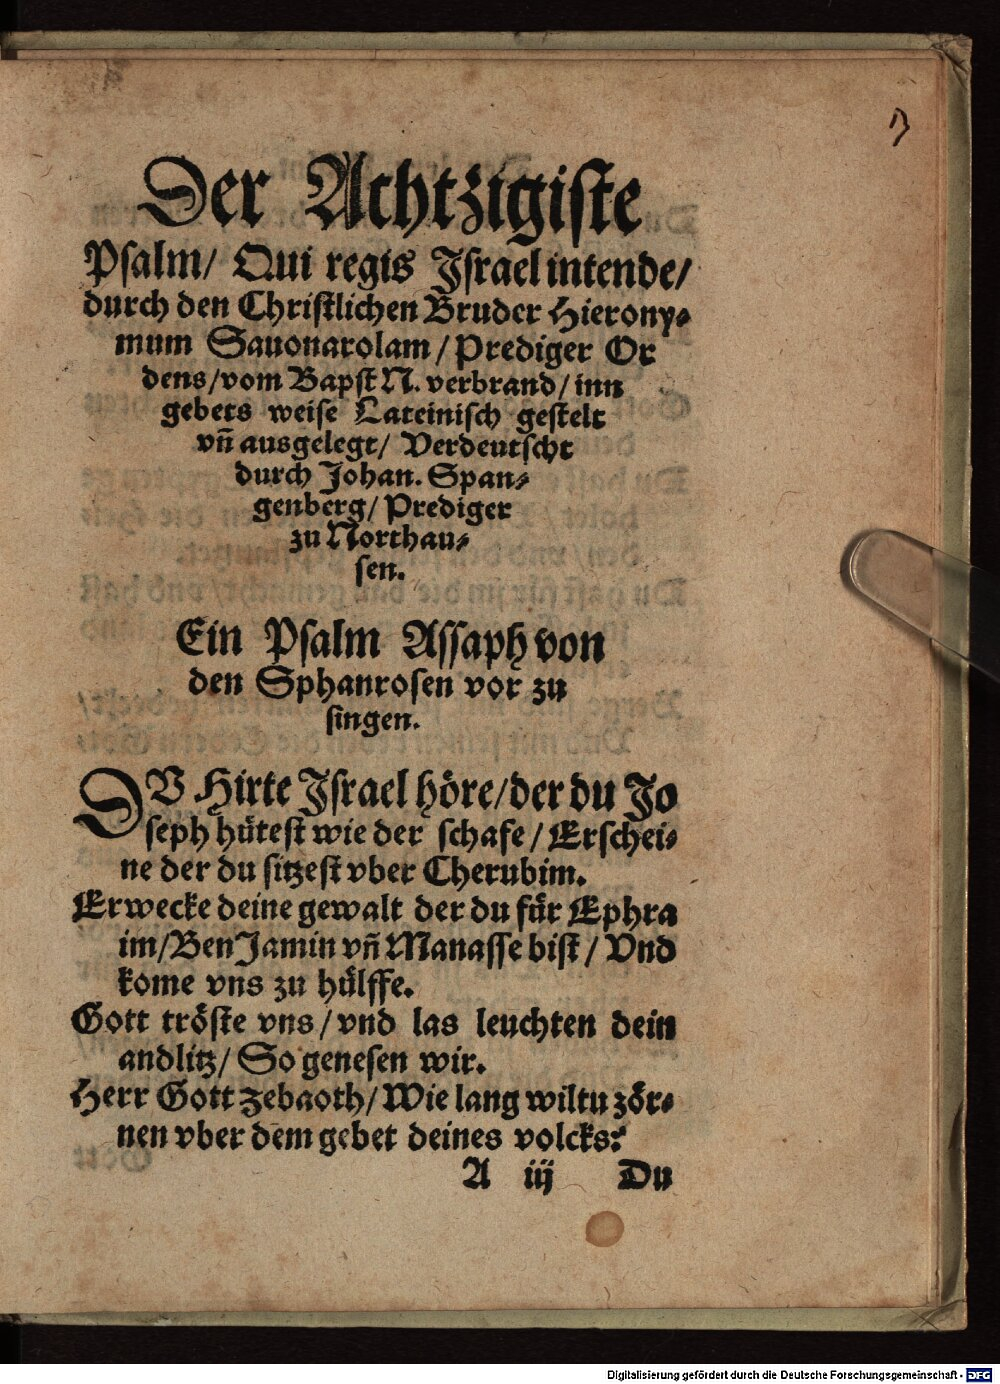 Der Achtzigiste
Psalm/ Qui regis Israel intende/
durch den Christlichen Bruder Hierony⸗
mum Sauonarolam/ Prediger Or
dens/ vom Bapst N. verbrand/ inn
gebets weise Lateinisch gestelt
vñ ausgelegt/ Verdeutscht
durch Johan. Span⸗
genberg/ Prediger
zu Northau⸗
sen.
Ein Psalm Assaph von
den Sphanrosen vor zu
singen.
DV Hirte Israel höre/ der du Jo
seph hütest wie der schafe/ Erschei⸗
ne der du sitzest vber Cherubim.
Erwecke deine gewalt der du für Ephra
im/ BenJamin vñ Manasse bist/ Vnd
kome vns zu hülffe.
Gott tröste vns/ vnd las leuchten dein
andlitz/ So genesen wir.
Herr Gott Zebaoth/ Wie lang wiltu zör⸗
nen vber dem gebet deines volcks?
A iij Du
Digitalisierung gefördert durch die Deutsche Forschungsgemeinschaft - DFG